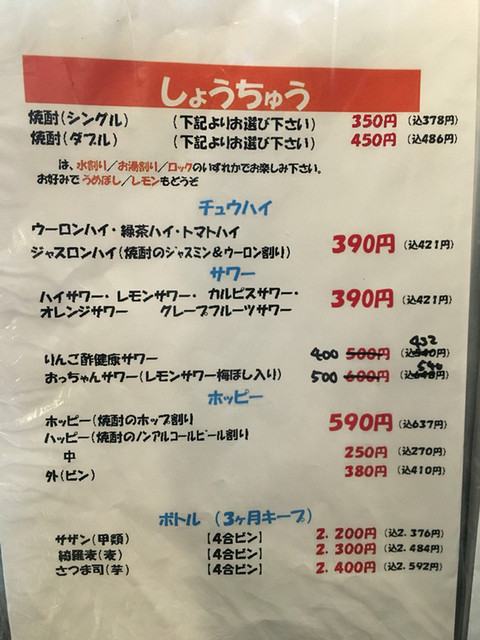 しょうちゅう
焼酎(シングル) (下記よりお選び下さい) 350円(込378円)
焼酎(ダブル) (下記よりお選び下さい) 450円(込486円)
は、水割り/お湯割り/ロックのいずれかでお楽しみ下さい。
お好みでうめぼし/レモンもどうぞ
チュウハイ
ウーロンハイ・緑茶ハイ・トマトハイ
ジャスロンハイ(焼酎のジャスミン&ウーロン割り) 390円(込421円)
サワー
ハイサワー・レモンサワー・カルピスサワー・ 390円(込421円)
オレンジサワー グレープフルーツサワー
432
りんご酢健康サワー 400 500円 (込540円)
540
おっちゃんサワー(レモンサワー梅ぼし入り) 500 600円 (込648円)
ホッピー
ホッピー(焼酎のホップ割り 590円(込637円)
ハッピー(焼酎のノンアルコールビール割り
中 250円(込270円)
外(ビン) 380円(込410円)
ボトル (3ヶ月キープ)
サザン(甲類) [4合ビン] 2.200円(込2.376円)
綺羅麦(麦) [4合ビン] 2.300円(込2.484円)
さつま司(芋) [4合ビン] 2.400円(込2.592円)